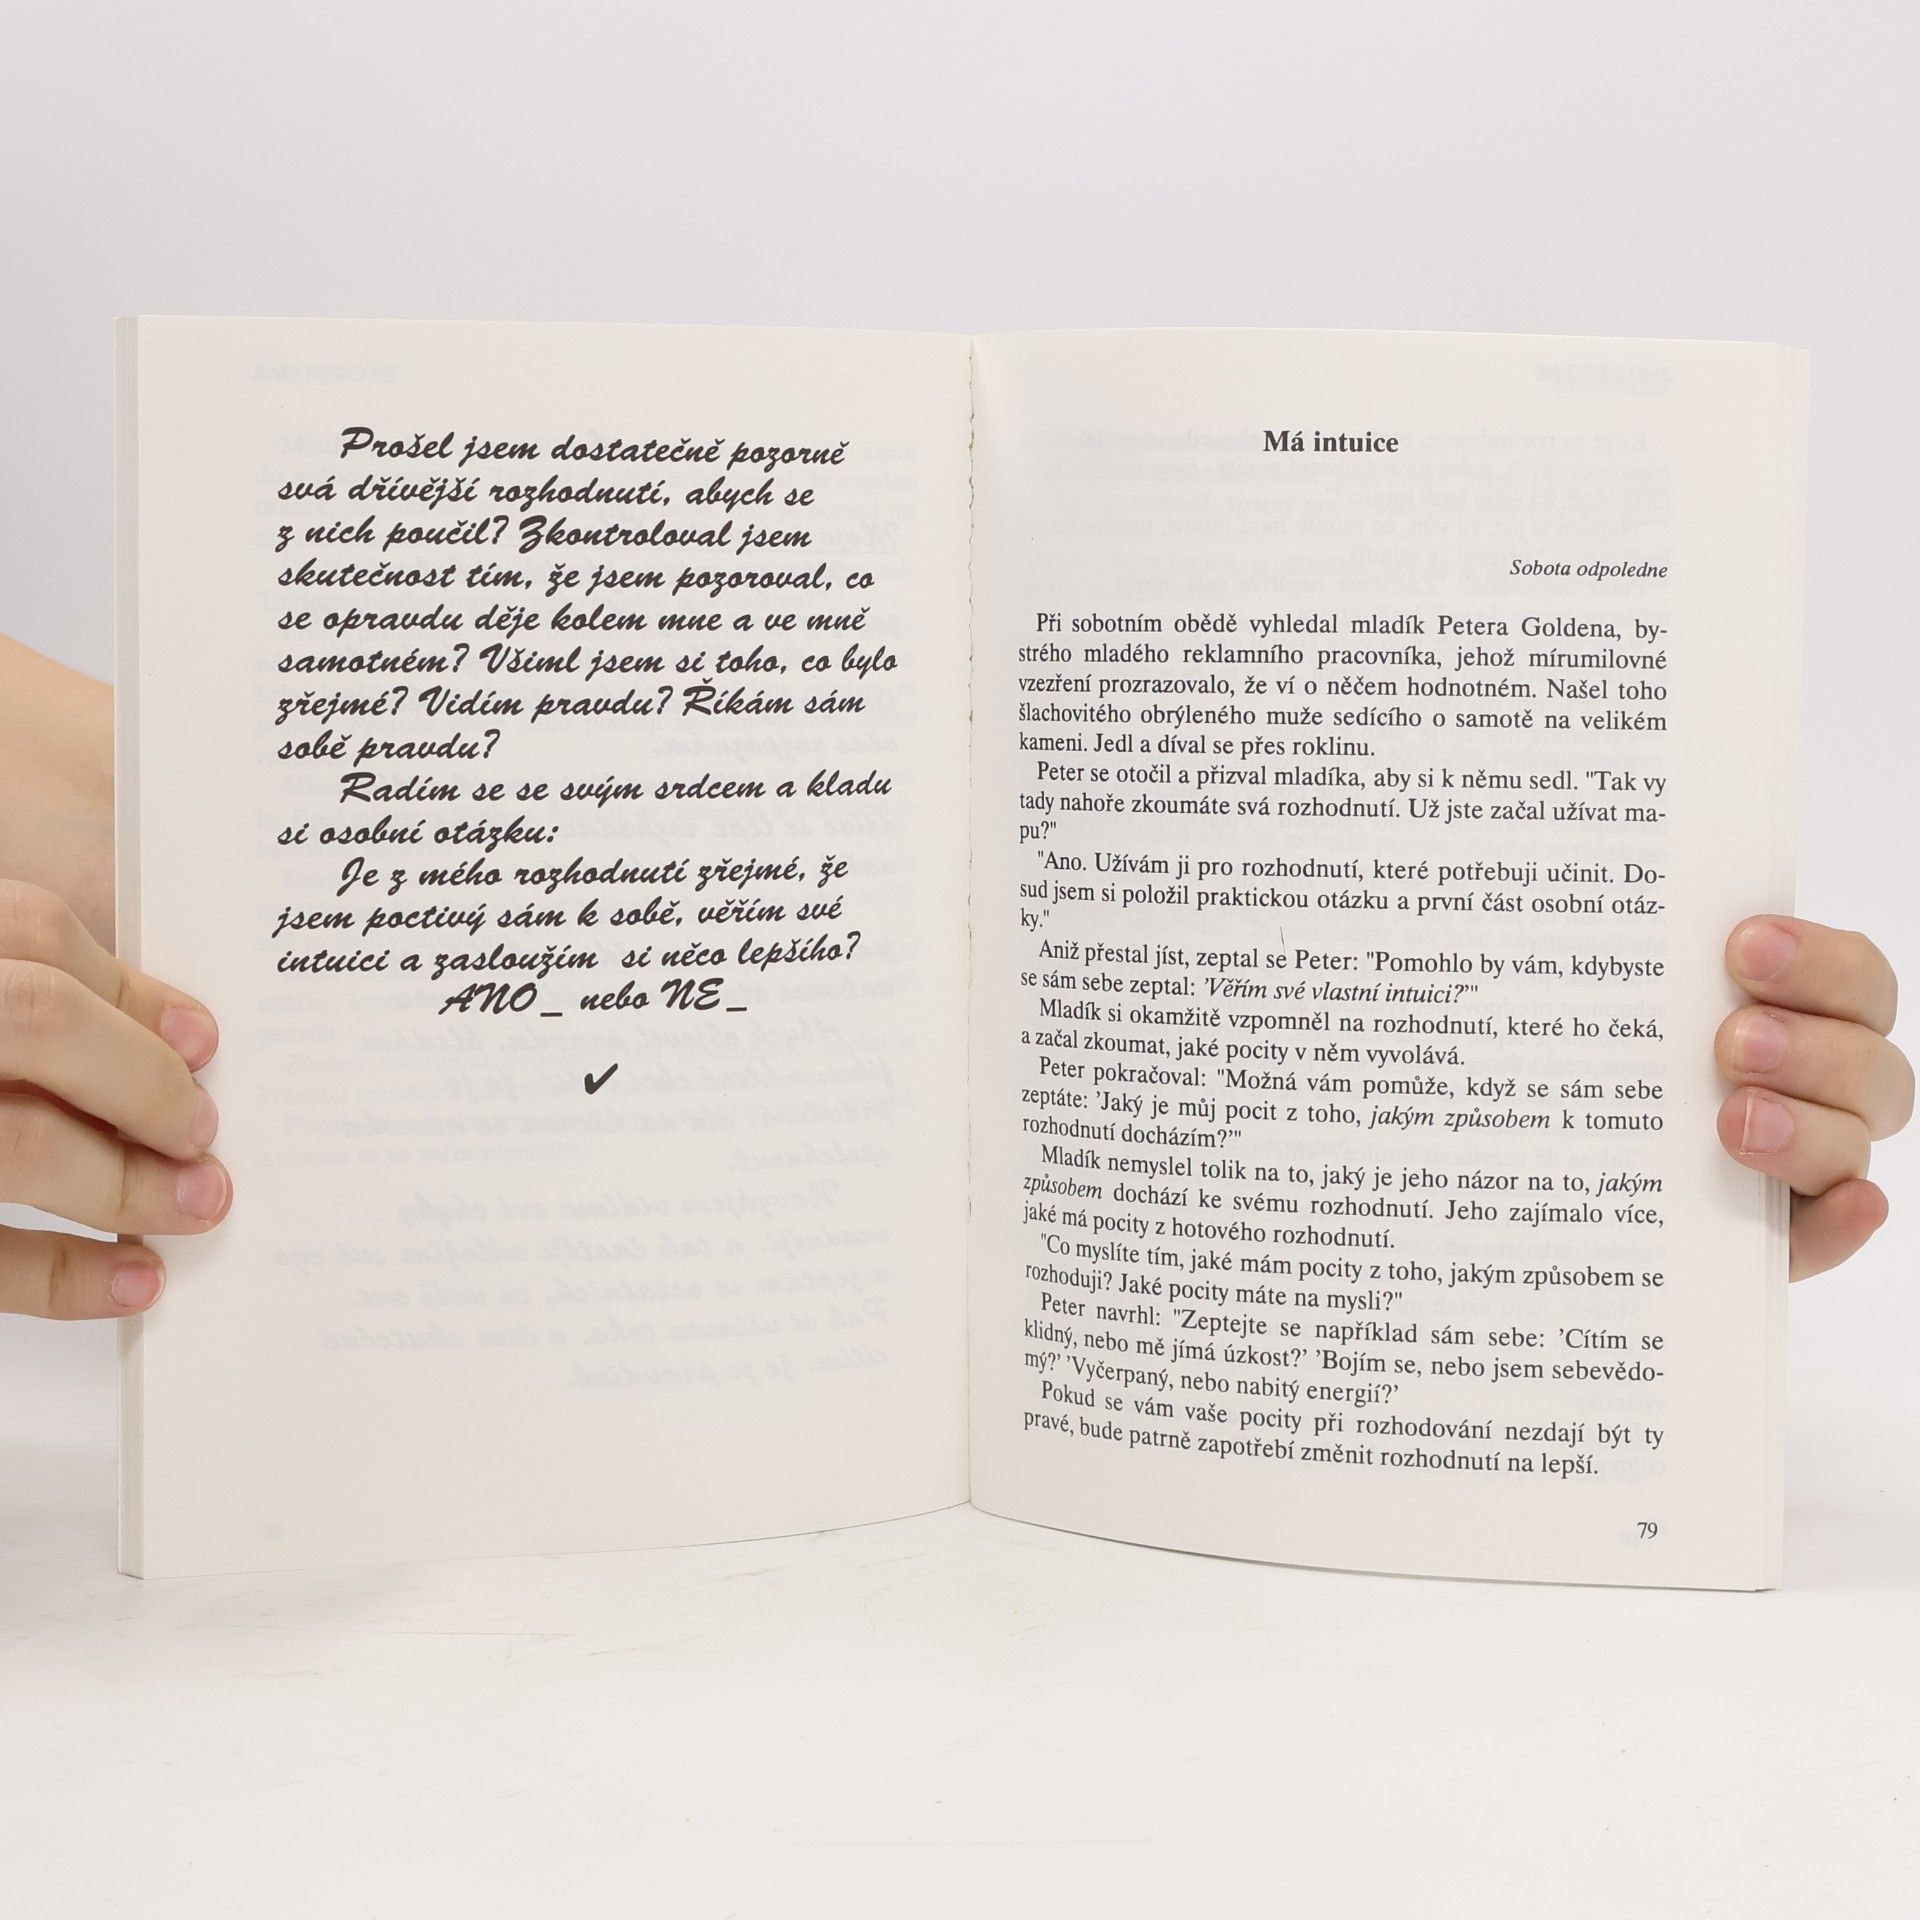 Prošel jsem dostatečně pozorně
svá dřívější rozhodnutí, abych se
z nich poučil? Zkontroloval jsem
skutečnost tím, že jsem pozoroval, co
se opravdu děje kolem mne a ve mně
samotném? Všiml jsem si toho, co bylo
zřejmé? Vidím pravdu? Říkám sám
sobě pravdu?
Radím se se svým srdcem a kladu
si osobní otázku:
Je z mého rozhodnutí zřejmé, že
jsem poctivý sám k sobě, věřím své
intuici a zasloužím si něco lepšího?
ANO _ nebo NE _
✓
Má intuice
Sobota odpoledne
Při sobotním obědě vyhledal mladík Petera Goldena, by-
strého mladého reklamního pracovníka, jehož mírumilovné
vzezření prozrazovalo, že ví o něčem hodnotném. Našel toho
šlachovitého obrýleného muže sedícího o samotě na velikém
kameni. Jedl a díval se přes roklinu.
Peter se otočil a přizval mladíka, aby si k němu sedl. "Tak vy
tady nahoře zkoumáte svá rozhodnutí. Už jste začal užívat ma-
pu?"
"Ano. Užívám ji pro rozhodnutí, které potřebuji učinit. Do-
sud jsem si položil praktickou otázku a první část osobní otáz-
ky."
Aniž přestal jíst, zeptal se Peter: "Pomohlo by vám, kdybyste
se sám sebe zeptal: 'Věřím své vlastní intuici?'"
Mladík si okamžitě vzpomněl na rozhodnutí, které ho čeká,
a začal zkoumat, jaké pocity v něm vyvolává.
Peter pokračoval: "Možná vám pomůže, když se sám sebe
zeptáte: 'Jaký je můj pocit z toho, jakým způsobem k tomuto
rozhodnutí docházím?'"
Mladík nemyslel tolik na to, jaký je jeho názor na to, jakým
způsobem dochází ke svému rozhodnutí. Jeho zajímalo více,
jaké má pocity z hotového rozhodnutí.
"Co myslíte tím, jaké mám pocity z toho, jakým způsobem se
rozhoduji? Jaké pocity máte na mysli?"
Peter navrhl: "Zeptejte se například sám sebe: 'Cítím se
klidný, nebo mě jímá úzkost?' 'Bojím se, nebo jsem sebevědo-
mý?' 'Vyčerpaný, nebo nabitý energií?'
Pokud se vám vaše pocity při rozhodování nezdají být ty
pravé, bude patrně zapotřebí změnit rozhodnutí na lepší.
79